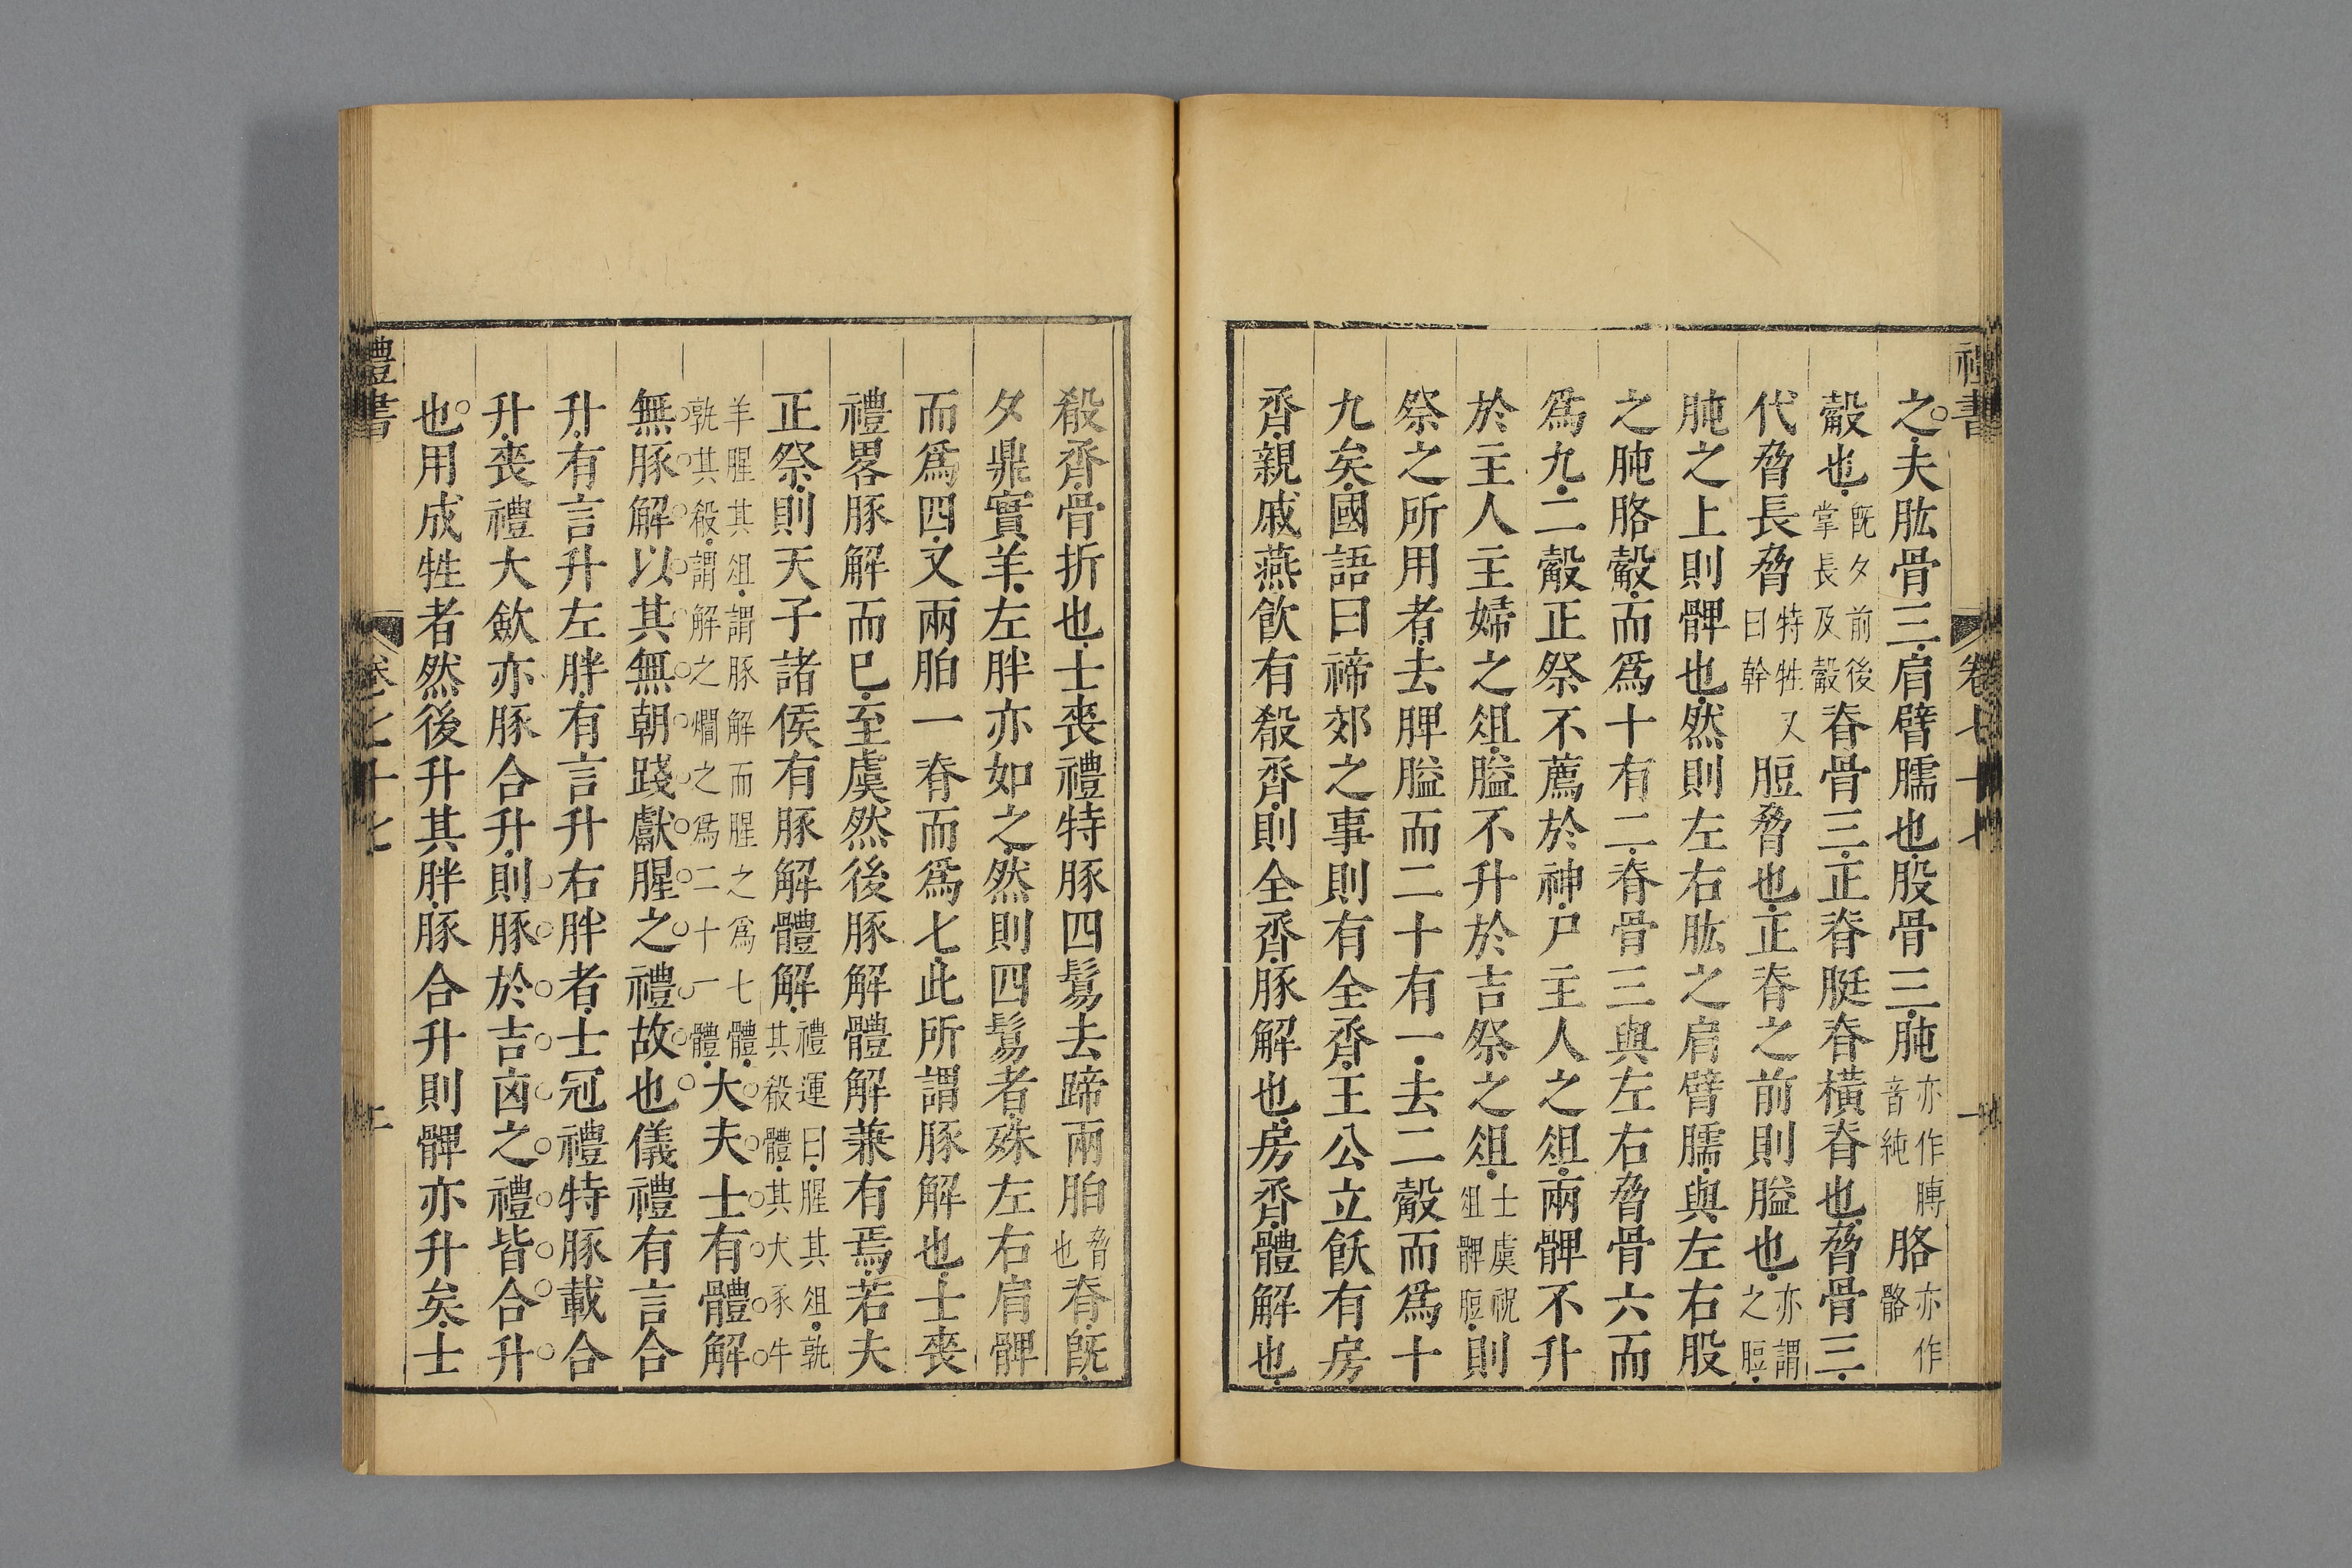 禮書 卷七十七
之夫肱骨三肩臂臑也股骨三肫亦作膞音純胳亦作骼
觳也既夕前後掌長及觳脊骨三正脊脡脊橫脊也脅骨三
代脅長脅特牲又曰幹脰脅也正脊之前則膉也亦謂之脰
肫之上則髀也然則左右肱之肩臂臑與左右股
之肫胳觳而爲十有二脊骨三與左右脅骨六而
爲九二觳正祭不薦於神尸主人之俎兩髀不升
於主人主婦之俎膉不升於吉祭之俎士虞祝俎髀脰則
祭之所用者去脾膉而二十有一去二觳而爲十
九矣國語曰禘郊之事則有全齊王公立飫有房
齊親戚燕飲有殽齊則全齊豚解也房齊體解也
殽齊骨折也士喪禮特豚四鬄去蹄兩胉脅也脊既
夕鼎實羊左胖亦如之然則四鬄者殊左右肩髀
而爲四又兩胉一脊而爲七此所謂豚解也士喪
禮畧豚解而已至虞然後豚解體解兼有焉若夫
正祭則天子諸侯有豚解體解禮運曰腥其俎孰其殽體其犬豕牛
羊腥其俎謂豚解而腥之爲七體孰其殽謂解之爓之爲二十一體大夫士有體解
無豚解以其無朝踐獻腥之禮故也儀禮有言合
升有言升左胖有言升右胖者士冠禮特豚載合
升喪禮大斂亦豚合升則豚於吉凶之禮皆合升
也用成牲者然後升其胖豚合升則髀亦升矣士
禮書 卷七十七